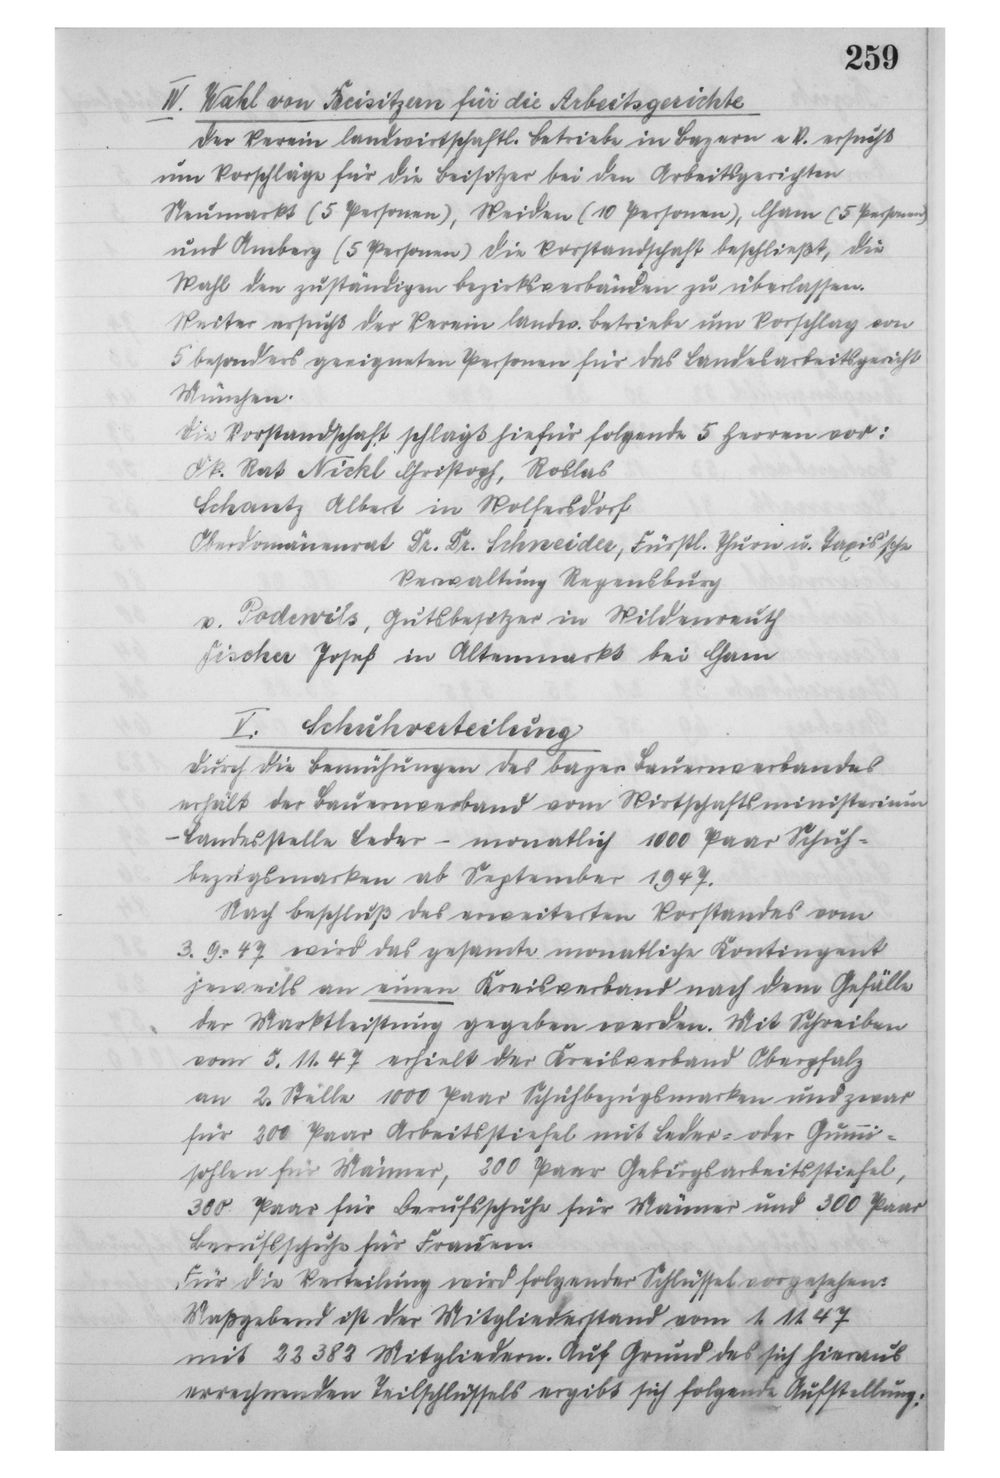 259
IV. Wahl von Beisitzern für die Arbeitsgerichte
Der Verein landwirtschaftl. Betriebe in Bayern e V. ersucht
um Vorschläge für die Beisitzer bei den Arbeitsgerichten
Neumarkt (5 Personen), Weiden (10 Personen), Cham (5 Personen)
und Amberg (5 Personen) Die Vorstandschaft beschließt, die
Wahl den zuständigen Bezirksverbänden zu überlassen.
Weiter ersucht der Verein landw. Betriebe um Vorschlag von
5 besonders geeigneten Personen für das Landesarbeitsgericht
München.
Die Vorstandschaft schlägt hiefür folgende 5 Herren vor:
Ök. Rat Nickl Christoph, Roslas
Schantz Albert in Wolfersdorf
Oberdomänenrat Dr. Dr. Schneider, Fürstl. Thurn u. Taxis'sche
Verwaltung Regensburg
v. Podewils, Gutsbesitzer in Wildenreuth
Fischer Josef in Altenmarkt bei Cham
V. Schuhverteilung
Durch die Bemühungen des bayer. Bauernverbandes
erhält der Bauernverband vom Wirtschaftsministerium
- Landesstelle Leder - monatlich 1000 Paar Schuh=
bezugsmarken ab September 1947.
Nach Beschluß des erweiterten Vorstandes vom
3. 9. 47 wird das gesamte monatliche Kontingent
jeweils an einen Kreisverband nach dem Gefälle
der Marktleistung gegeben werden. Mit Schreiben
vom 5. 11. 47 erhielt der Kreisverband Oberpfalz
an 2. Stelle 1000 Paar Schuhbezugsmarken und zwar
für 200 Paar Arbeitsstiefel mit Leder= oder Gummi=
sohlen für Männer, 200 Paar Gebirgsarbeitsstiefel,
300 Paar für Berufsschuhe für Männer und 300 Paar
Berufsschuhe für Frauen.
Für die Verteilung wird folgender Schlüssel vorgesehen:
Maßgebend ist der Mitgliederstand vom 1. 11. 47
mit 22 382 Mitgliedern. Auf Grund des sich hieraus
errechnenden Teilschlüssels ergibt sich folgende Aufstellung: